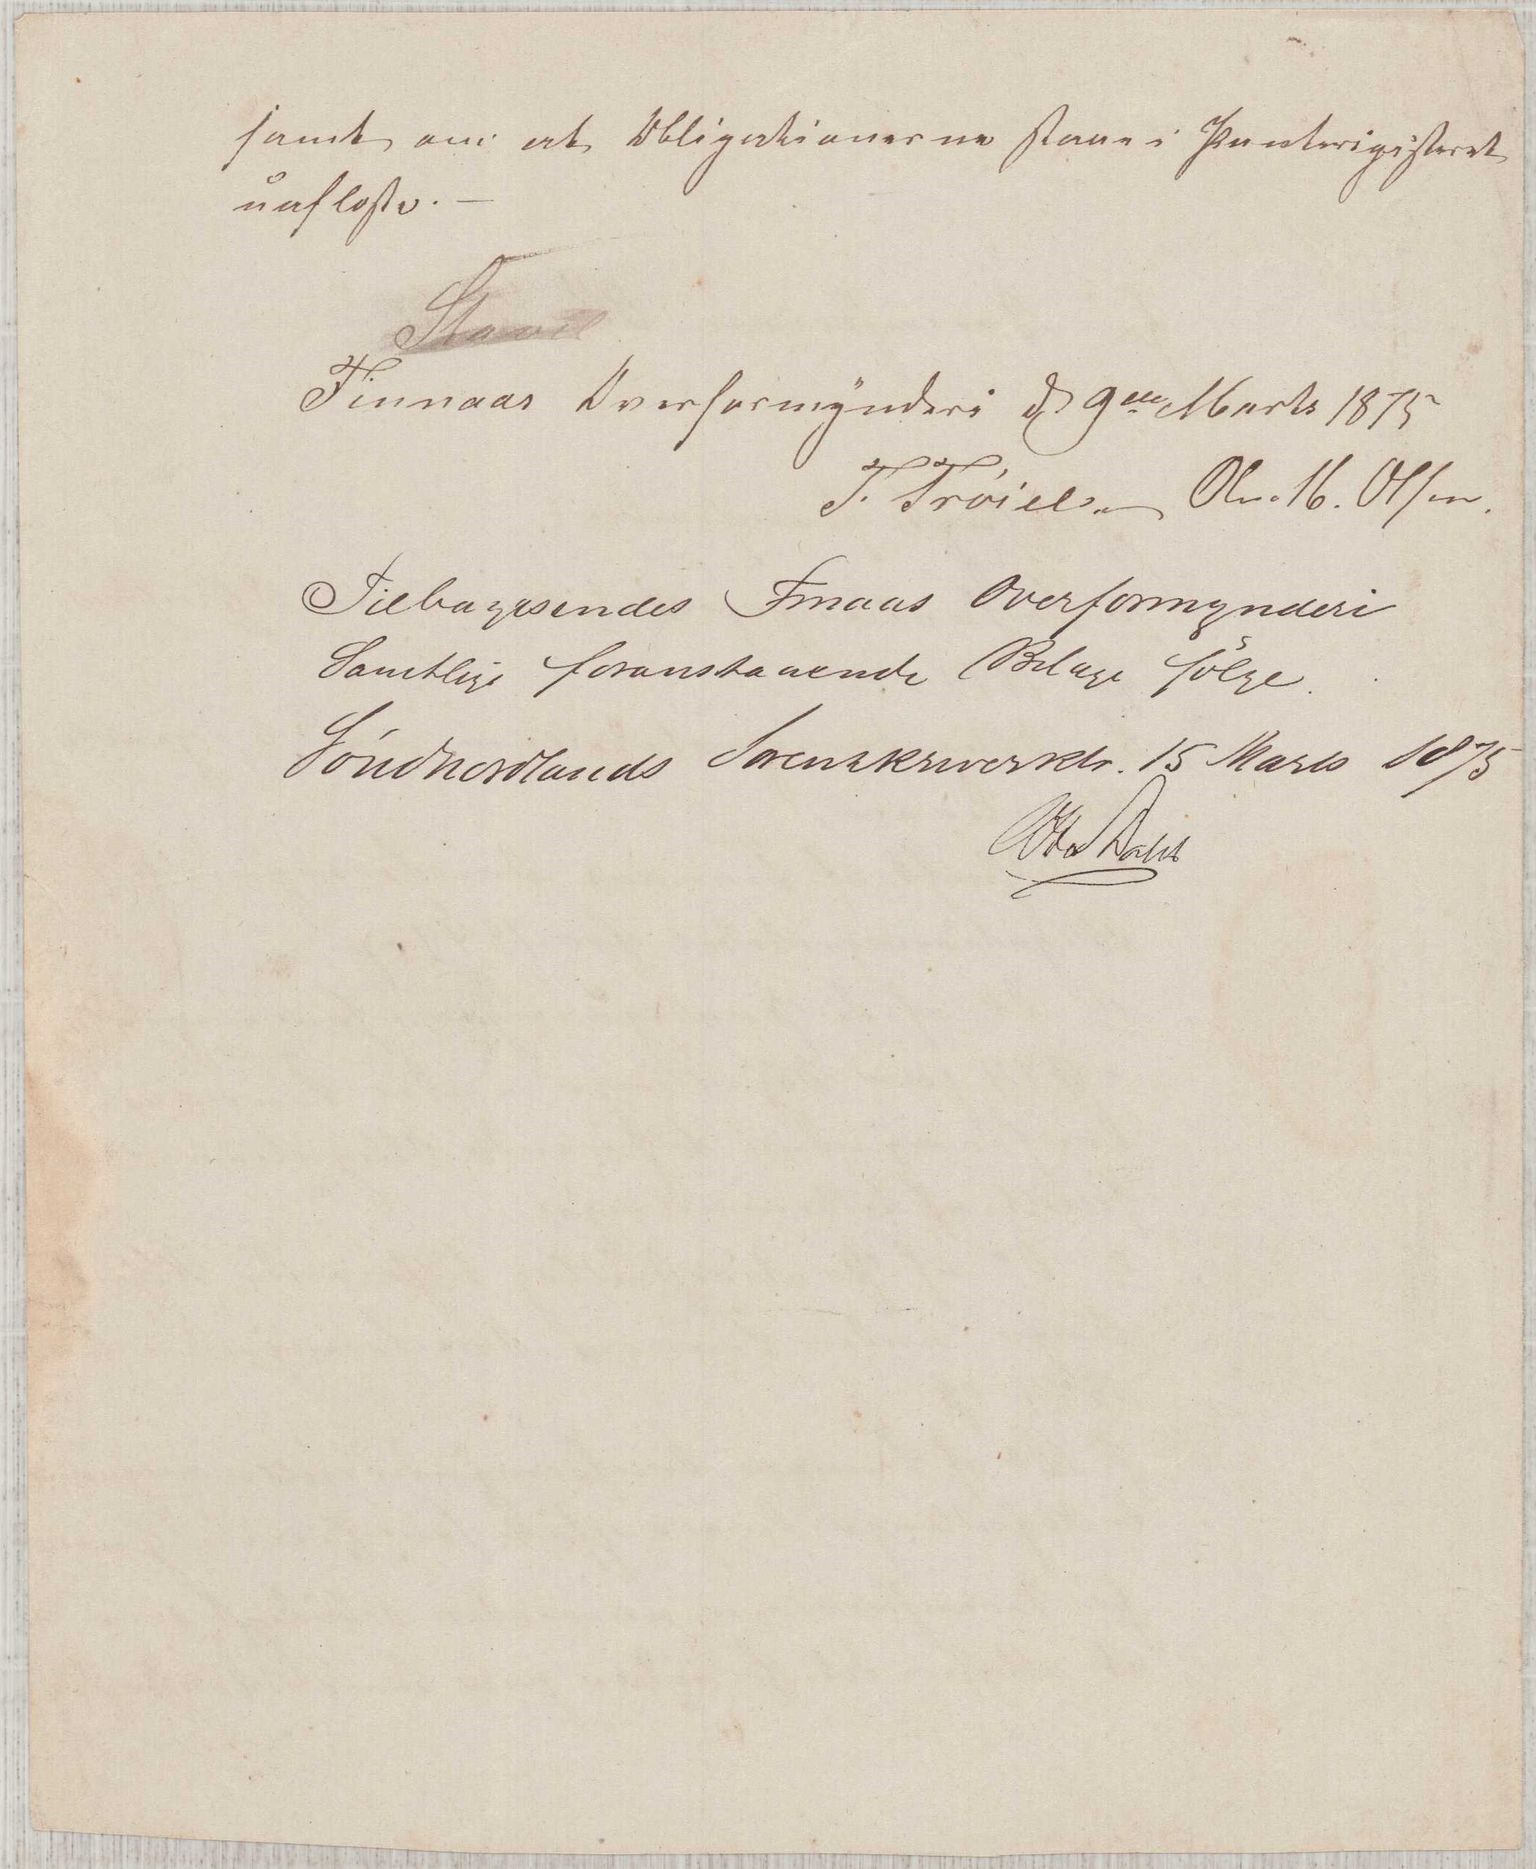 samt om at Obligationerne staae i Panteregisteret
uafløste. —
Finnaas Overformynderi d. 9de Marts 1875
T. Trøien Ole M. Olsen.
Tilbagesendes Finaas Overformynderi
Samtlige foranstaaende Bilage følge.
Søndhordlands Sorenskriverktr. 15 Marts 1875
Otto Dahl